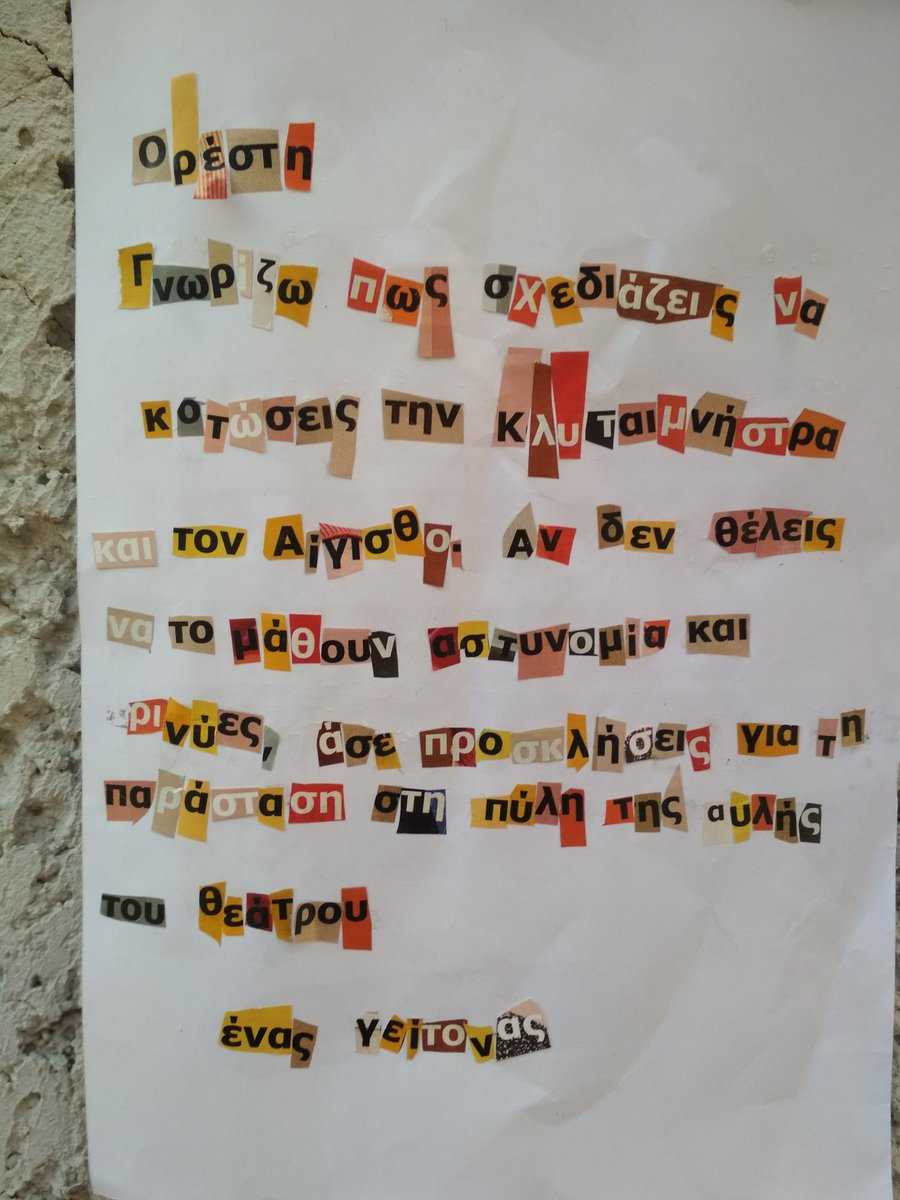 Ορέστη
Γνωρίζω πως σχεδιάζεις να
κοτώσεις την Κλυταιμνήστρα
και τον Αίγισθο. Αν δεν θέλεις
να το μάθουν αστυνομία και
ρινύες, άσε προσκλήσεις για τη
παράσταση στη πύλη της αυλής
του θεάτρου
ένας γείτονας